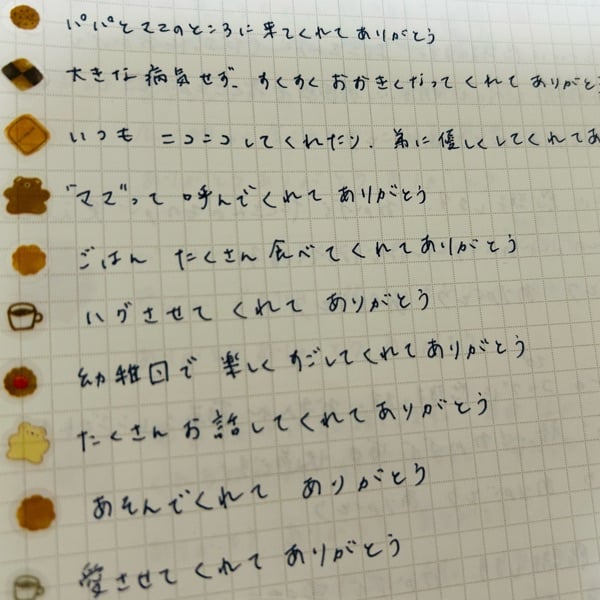 パパとママのところに来てくれてありがとう
大きな病気せず、すくすくおおきくなってくれてありがと
いつもニコニコしてくれたり、弟に優しくしてくれてあ
"ママ"って呼んでくれてありがとう
ごはんたくさん食べてくれてありがとう
ハグさせてくれてありがとう
幼稚園で楽しくすごしてくれてありがとう
たくさんお話してくれてありがとう
あそんでくれてありがとう
愛させてくれてありがとう